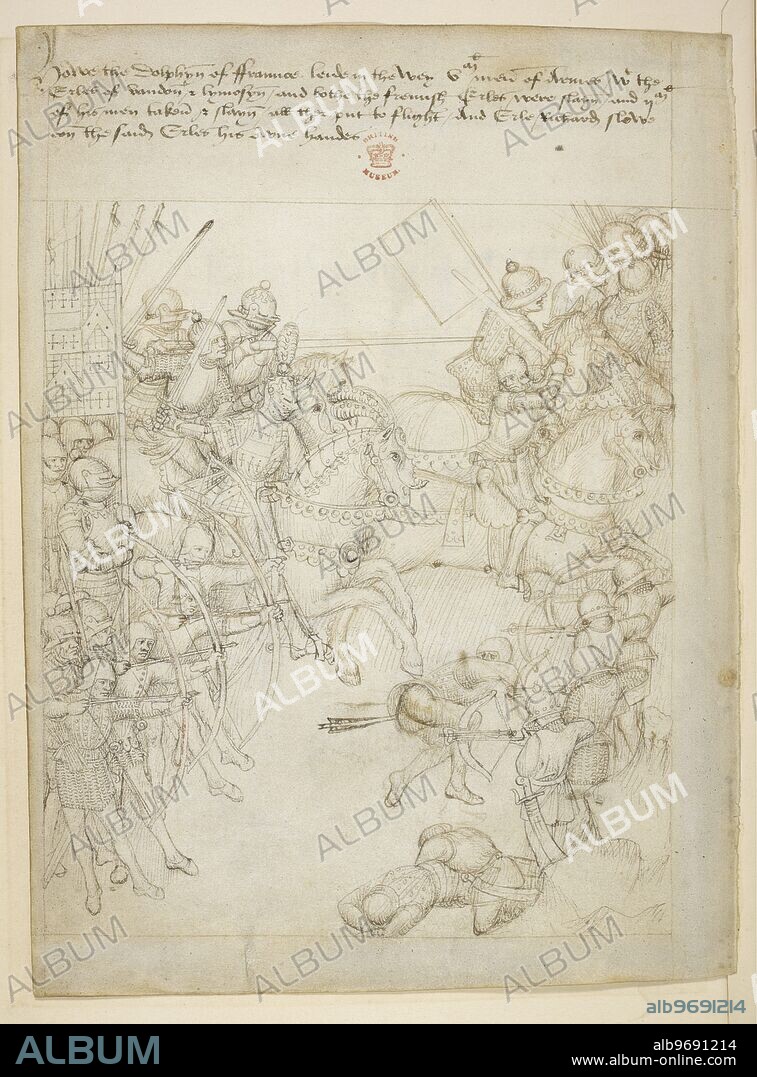 Howe the Dolphyn of ffraunce leide in the wey v ml men of Armes wt the
Erles of vandon & lymosyn and bothe the frensh Erles were slayn and ij ml
of his men taken & slayn all the put to flight And Erle Richard slowe
oon the saide Erles his owne handes
BRITISH
MUSEUM
ALBUM
alb9691214
ALBUM
alb9691214
www.album-online.com